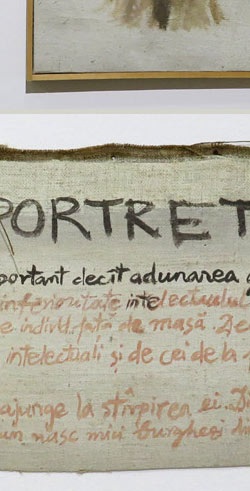 PORTRET
portant decît adunarea
inferioritate intelectualul
e indivi. față de masă. De
intelectuali și de cei de la
ajunge la stîrpirea ei. D
nasc mici burghezi din